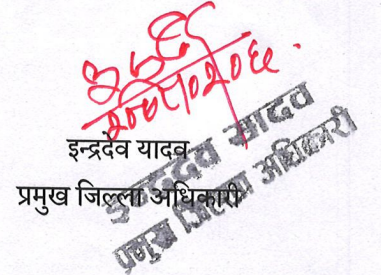 इन्द्रदेव यादव
प्रमुख जिल्ला अधिकारी
इन्द्रदेव यादव
प्रमुख जिल्ला अधिकारी